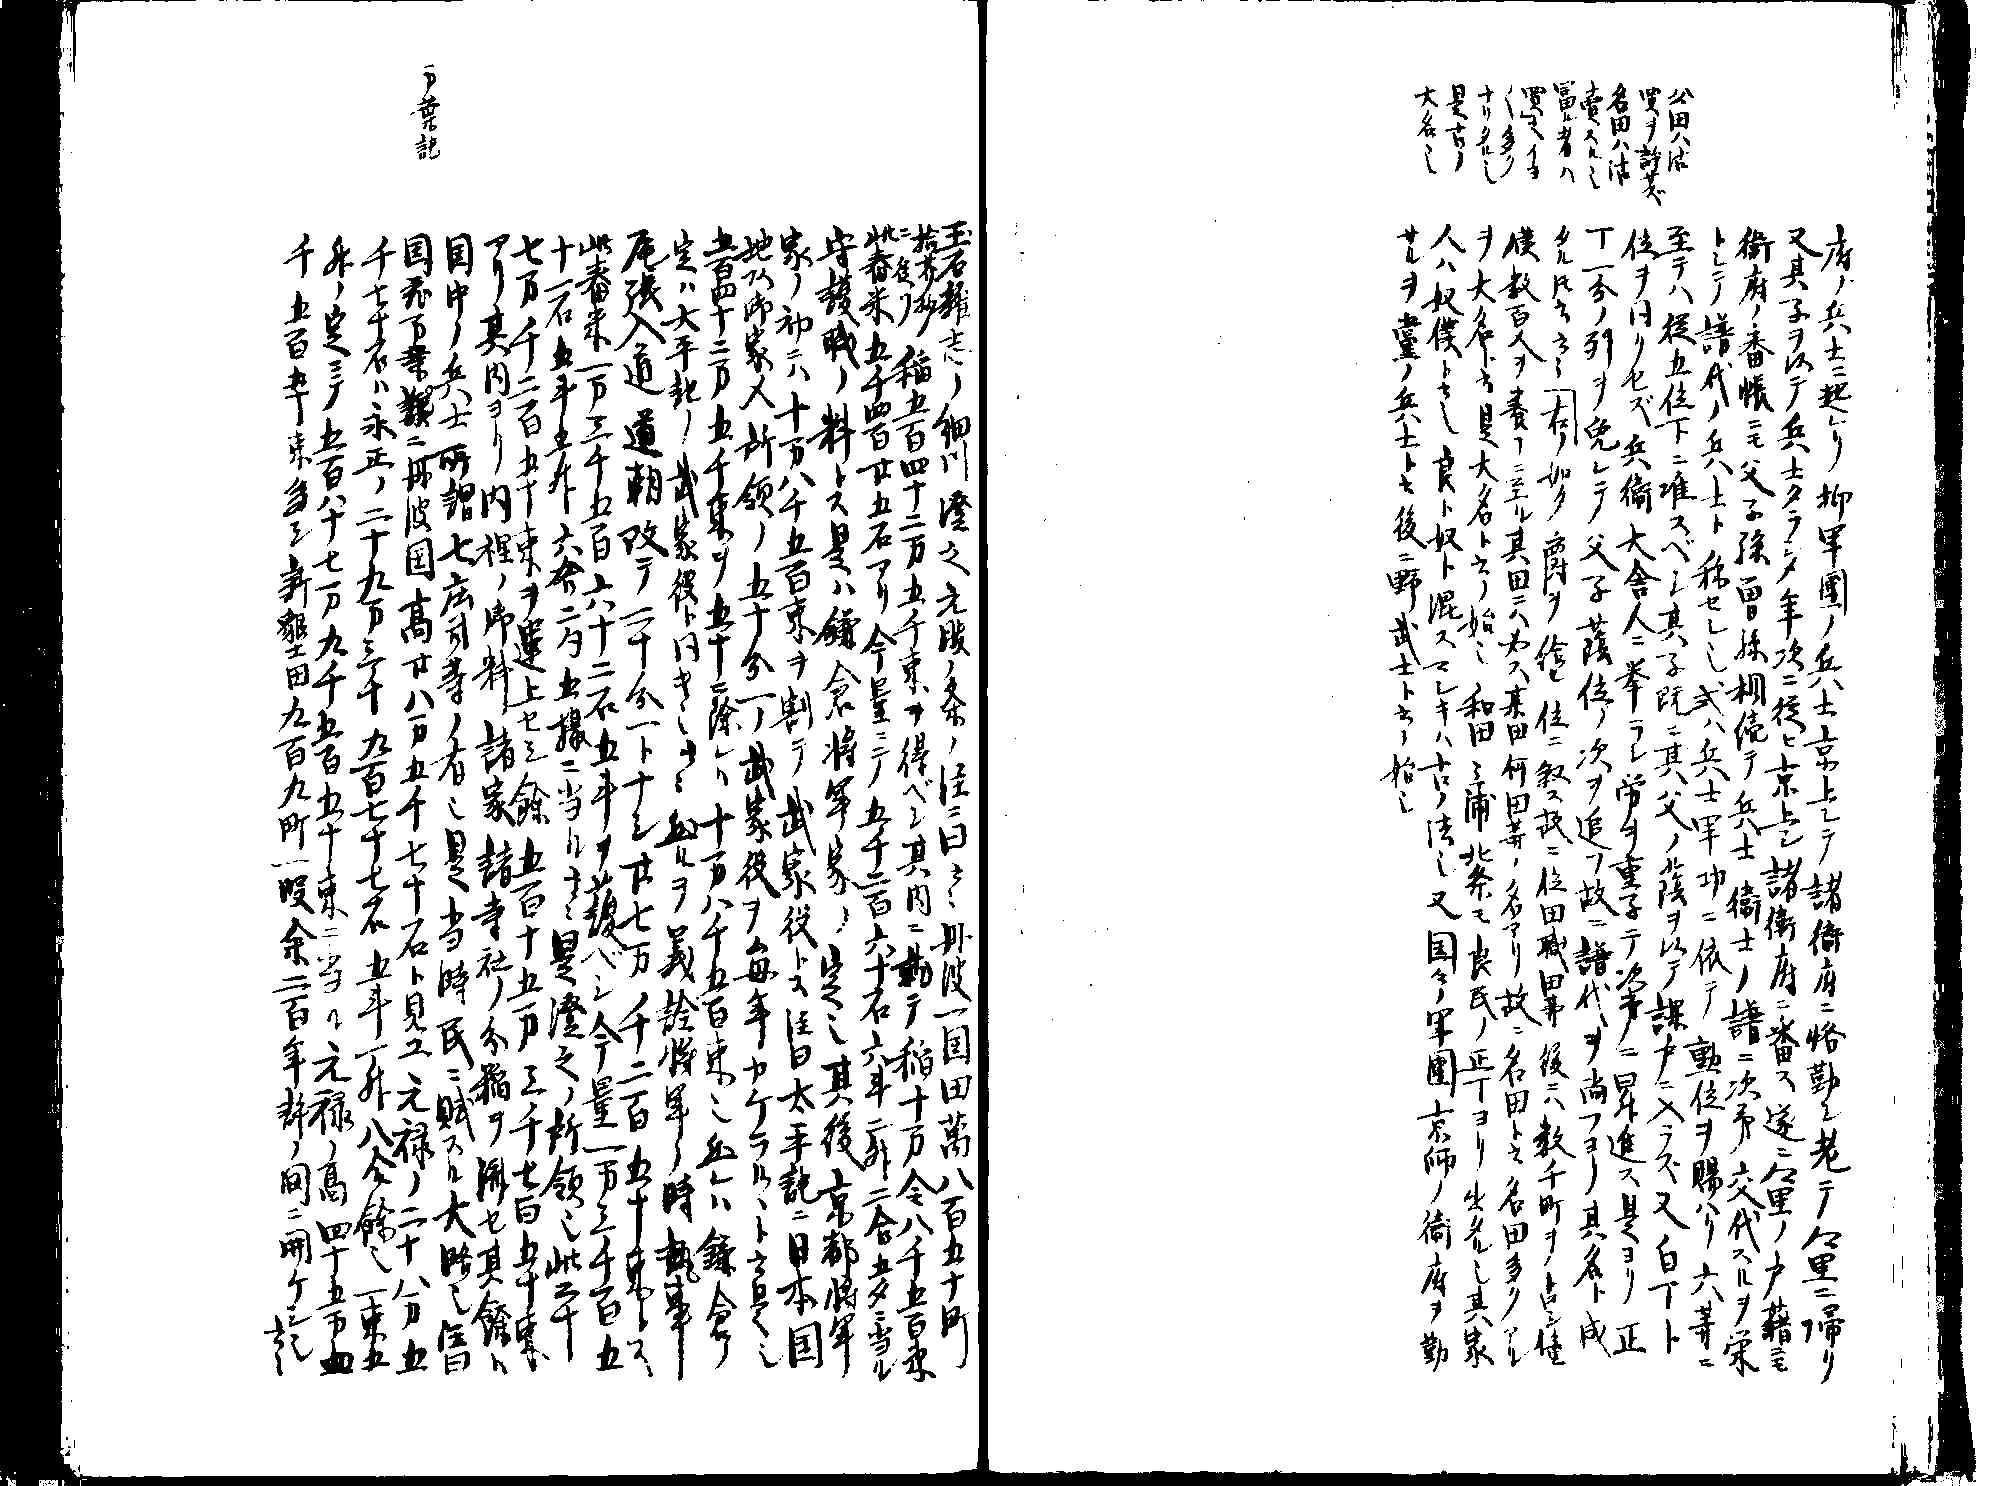 公田ハ沽
買ヲ許サズ
名田ハ沽
賣スル也
富ル者ハ
買テ
多ク
ナリタル也
是古ノ
大名也
府ノ兵士ニ起レリ抑軍團ノ兵士京上シテ諸衛府ニ恪勤シ老テ郷里ニ帰リ
又其子ヲ以テ兵士タラシメ年次ニ従ヒ京上シ諸衛府ニ番ス遂ニ郷里ノ戸籍ニモ
衛府ノ番帳ニモ父子孫曽孫相續テ兵士衛士ノ譜ニ次第交代スルヲ栄
トシテ譜代ノ兵士ト称セシ也或ハ兵士軍功ニ依テ勲位ヲ賜ハリ六等ニ
至テハ従五位下ニ准スベシ其子既ニ其父ノ蔭ヲ以テ課戸ニ入ラズ又白丁ト
位ヲ同クセズ兵衛大舎人ニ挙ラレ労ヲ重子テ次第ニ昇進ス是ヨリ正
丁一分ノ列ヲ免レテ父子蔭位ノ次ヲ追フ故ニ譜代ヲ尚フヨノ其名ト成
タル氏云々右ノ如ク爵ヲ給ヒ位ニ叙ス故ニ位田職田等後ニハ数千町ヲ占シ僮
僕数百人ヲ養フニ至ル其田ニハ某田何田等ノ名アリ故ニ名田ト云名田多クアル
ヲ大名ト云是大名ト云ノ始也和田三浦北条モ良民ノ正丁ヨリ出タル也其家
人ハ奴僕ト云也良ト奴ト混スマシキハ古ノ法也又国々ノ軍團京師ノ衛府ヲ勤
サルヲ黨ノ兵士ト云後ニ野武士ト云ノ始也
万葉記
玉石雑志ノ細川澄之元服ノ条ノ注ニ曰云々丹波一国田萬八百五十町
拾芥抄ニ従フ稲五百四十二万五千束ヲ得ベシ其内ニ勘テ稲十万令八千五百束
此舂米五千四百廿五石アリ今量ニテ五千二百六十石六斗二升二合五夕ニ当ル
守護職ノ料トス是ハ鎌倉将軍家ノ定也其後京都将軍
家ノ初ニハ十万八千五百束ヲ割テ武家役トス注曰太平記ニ日本国
地頭御家人所領ノ五十分一ノ武家役ヲ毎年カケラルヽト云是也
五百四十二万五千束ヲ五十ニ除レハ十万八千五百束也然レハ鎌倉ノ
定ハ太平記ノ武家役ト同キ也然ルヲ義詮将軍ノ時執事
尾張入道道朝改テ二十分一トナシ廿七万千二百五十束トス
此舂米一万三千五百六十二石五斗ヲ獲ベシ今量一万三千百五
十一石五斗五升六合二夕五撮ニ当ル也是澄之ノ所領也此二十
七万千二百五十束ヲ運上セシ餘五百十五万三千七百五十束
アリ其内ヨリ内裡ノ御料諸家諸寺社ノ分稲ヲ済セ其餘ハ
国中ノ兵士所謂七庄司等ノ者也是当時民ニ賦スル大略也旧
国花万葉記ニ丹波国高廿八万五千七十石ト見ユ元禄ノ二十八万五
千七十石ハ永正ノ二十九万三千九百七十七石五斗一升八合餘也一束五
升ノ定ニテ五百八十七万九千五百五十束ニ当ル元禄ノ高四十五万四
千五百五十束多シ新墾田九百九町一段余二百年許ノ間ニ開ケシ也